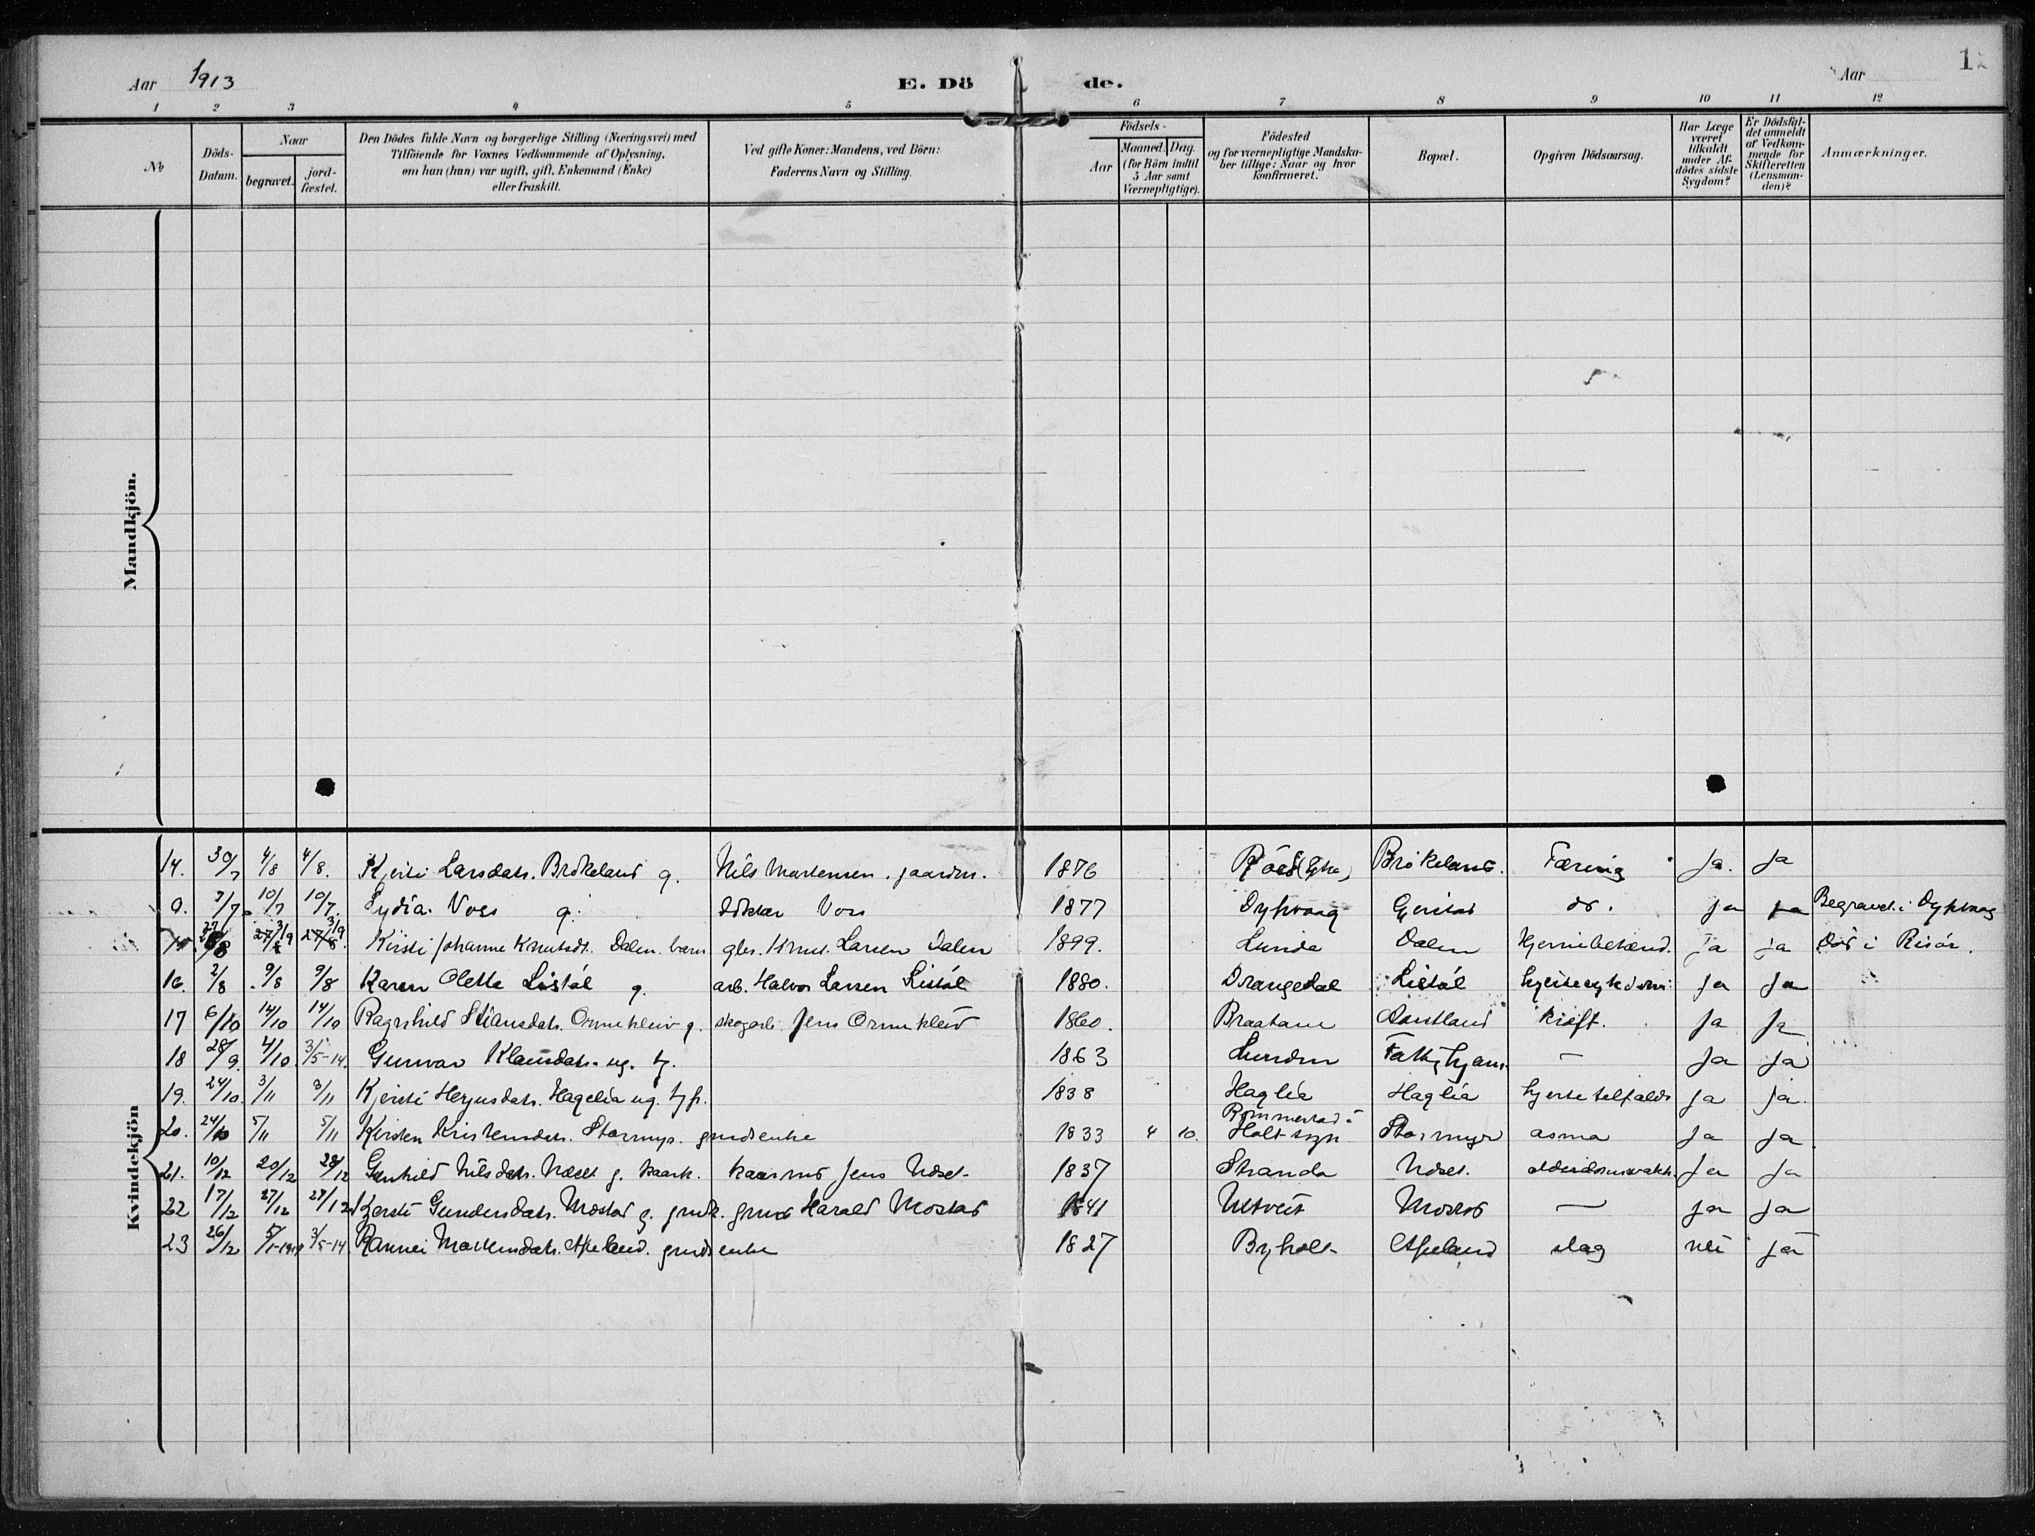 Aar 1913 E. Dö de. Aar 1
1 2 3 4 5 6 7 8 9 10 11 12
No
Döds-Datum.
Naar
begravet.
jord-fæstet.
Den Dödes fulde Navn og borgerlige Stilling (Næringsvei) med
Tilföiende for Voxnes Vedkommende af Oplysning,
om han (hun) var ugift, gift, Enkemand (Enke)
eller fraskilt.
Ved gifte Koner: Mandens, ved Börn:
Faderens Navn og Stilling.
Födsels-
Aar
Maaned. Dag.
(for Börn indtil
5 Aar samt
Værnepligtige).
Födested
og for værnepligtige Mandska-
ber tillige: Naar og hvor
konfirmeret.
Bopæl.
Opgiven Dödsaarsag.
Har Læge
været
tilkaldt
under Af-
dödes sidste
Sygdom?
Er Dödsfal-
det anmeldt
af Vedkom-
mende for
Skifteretten
(Lensman-
den)?
Anmærkninger.
Mandkjön.
Kvindekjön
14. 30/7 4/8 4/8. Kjersti Larsdatr. Brökeland g. Nils Martensen. gaardm. 1876 Brökeland. Tæring ja. ja
9. 7/7 10/7 10/7. Lydia Voss g. doktor Voss 1877 Dypvaag Gjerstad do. ja ja Begravet i Dypvaag
27/8 27/8 3/9 27/8 3/9 Kirsti Johanne Knutsdt. Dalen. barn gbr. Knut Larsen Dalen 1899. Lunde Dalen Hjernebetænd. ja ja Död i Risör.
16. 2/8 9/8 9/8 Karen Olette Listöl g. arb. Halvor Larsen Listöl 1880. Drangedal Listöl hjertesykdom ja ja
17 6/10 14/10 14/10 Ragnhild Stiansdatr. Ormekleiv g. skogarb. Jens Ormekleiv 1860. Braatane kræft. ja ja
18 28/9. 4/10. 3/5-14. Gunvor Klausdatr. ug. tj. 1863 Lunden — ja ja
19. 24/10. 3/11 3/11 Kjersti Hagelia ug. 1838 Haglia Haglia hjertetilfælde ja ja.
20. 24/10 5/11 5/11 Kirsten Kristensdatr. Stormyr. grudsenke 1833 4 10. Rommerstad i
Holt sogn Stormyr asma ja ja.
21. 10/12 20/12 28/12 Gunhild Nilsdatr. Udset g. kaark. kaarmd Jens Udset 1837 Stranda Udset. alderdomssvakh. ja ja
22 17/12 27/12 27/12 Kjersti Gundersdatr. Mostad g. grudk. grud Harald Mostad 1841 Utsveit Mostad — ja ja
23 26/12 5/1-1914 3/5-14 Rannei Mortensdatr. Apeland. grudsenke 1827 Byholt Apeland slag nei ja